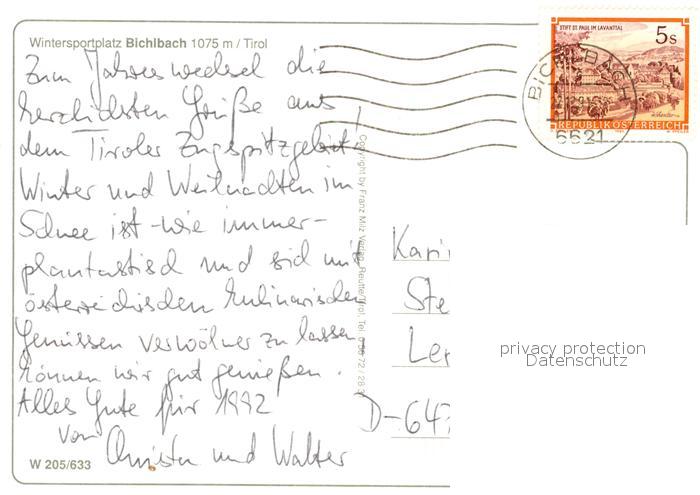 Wintersportplatz Bichlbach 1075 m / Tirol
Zum Jahreswechsel die
herzlichsten Grüße aus
dem Tiroler Zugspitzgebiet!
Winter und Weihnachten im
Schnee ist - wie immer -
phantastisch und sich mit
österreichischen kulinarischen
Genüssen verwöhnen zu lassen
können wir gut genießen.
Alles Gute für 1992
von Christa und Walter
W 205/633
Copyright by Franz Milz Verlag, Reutte/Tirol, Tel. 056 72 / 28 3
STIFT ST. PAUL IM LAVANTTAL
5s
REPUBLIK ÖSTERREICH
BICHLBACH
6621
Kari
Ste
Le
D-647
privacy protection
Datenschutz